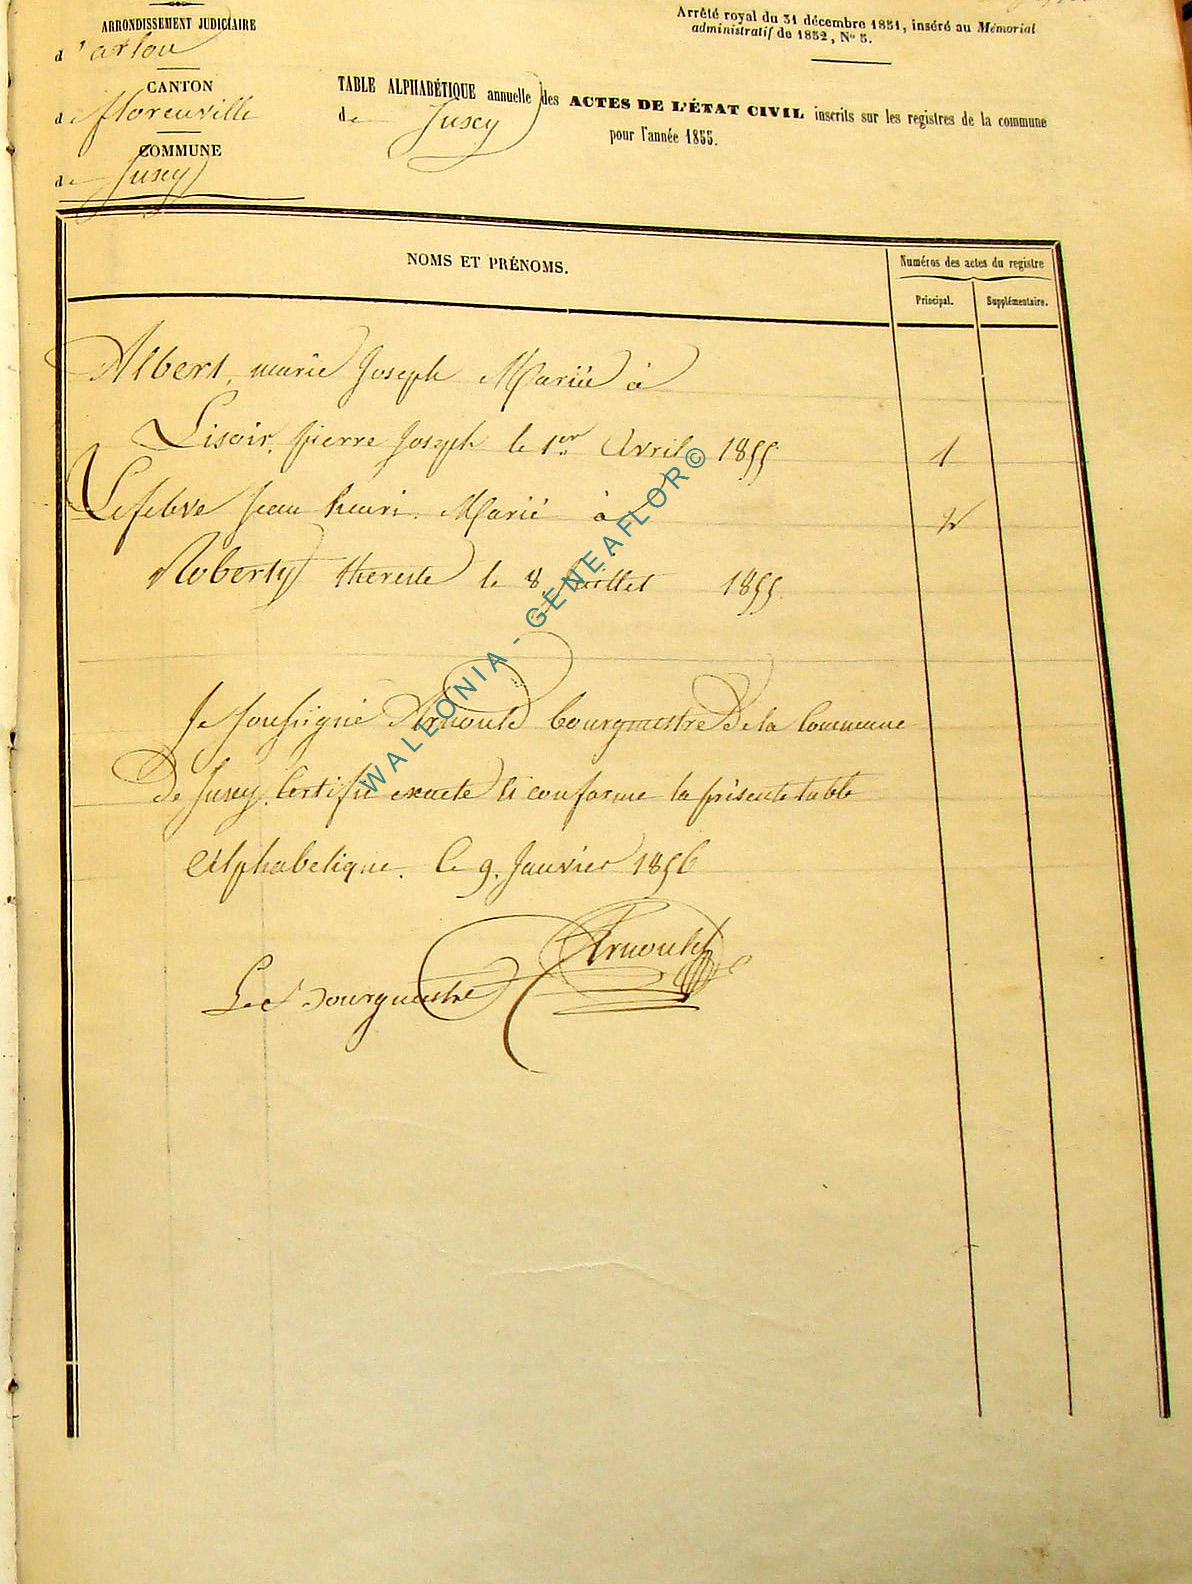 ARRONDISSEMENT JUDICIAIRE
d'arlon
CANTON
de florenville
COMMUNE
de Jusey
Arrêté royal du 31 décembre 1851, inséré au Mémorial
administratif de 1852, No 5.
TABLE ALPHABÉTIQUE annuelle des ACTES DE L'ÉTAT CIVIL inscrits sur les registres de la commune
de Jusey
pour l'année 1855.
NOMS ET PRÉNOMS.
Numéros des actes du registre
Principal.
Supplémentaire.
Albert, marie Joseph Mariée à
Lisoir, pierre Joseph le 1er Avril 1855 1
Lefebve Jean henri. Marié à 2
Roberty therese le 8 Juillet 1855.
Je soussigné Arnould bourgmestre De la Commune
De Jusey. Certifie exacte et conforme la présente table
Alphabetique. le 9. Janvier 1856
Arnould
Le Bourgmestre
WALLONIA - GENEAFLOR©